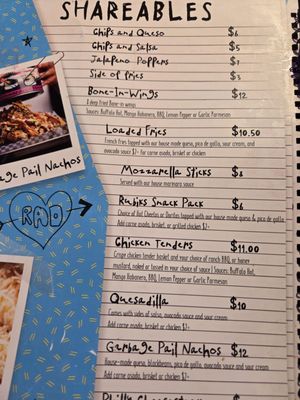 SHAREABLES
Chips and Queso $6
Chips and Salsa $5
Jalapeno Poppers $7
Side of fries $3
Bone-In-Wings $12
8 deep fried bone-in wings
Sauces: Buffalo Hot, Mango Habanero, BBQ, Lemon Pepper or Garlic Parmesan
Loaded Fries $10.50
French fries tapped with our house made queso, pico de gallo, sour cream, and
avocado sauce $2+ for carne asada, brisket or chicken
Mozzarella Sticks $8
Served with our house marinara sauce
Rubiks Snack Pack $6
Choice of Hot Cheetos or Doritos tapped with our house made queso & pico de gallo.
Add carne asada, brisket, or grilled chicken $2+
Chicken Tenders $11.00
Crispy chicken tender basket and your choice of ranch BBQ, or honey
mustard, naked or tossed in your choice of sauce | Sauces: Buffalo Hot,
Mango Habanero, BBQ, Lemon Pepper or Garlic Parmesan
Quesadilla $10
Comes with side of salsa, avocado sauce and sour cream
Add carne asada, brisket, or chicken $2+
Garbage Pail Nachos $12
House-made queso, blackbeans, pico de gallo, avocado sauce and sour cream
Add carne asada, brisket or chicken $2+
age Pail Nachos
RAD